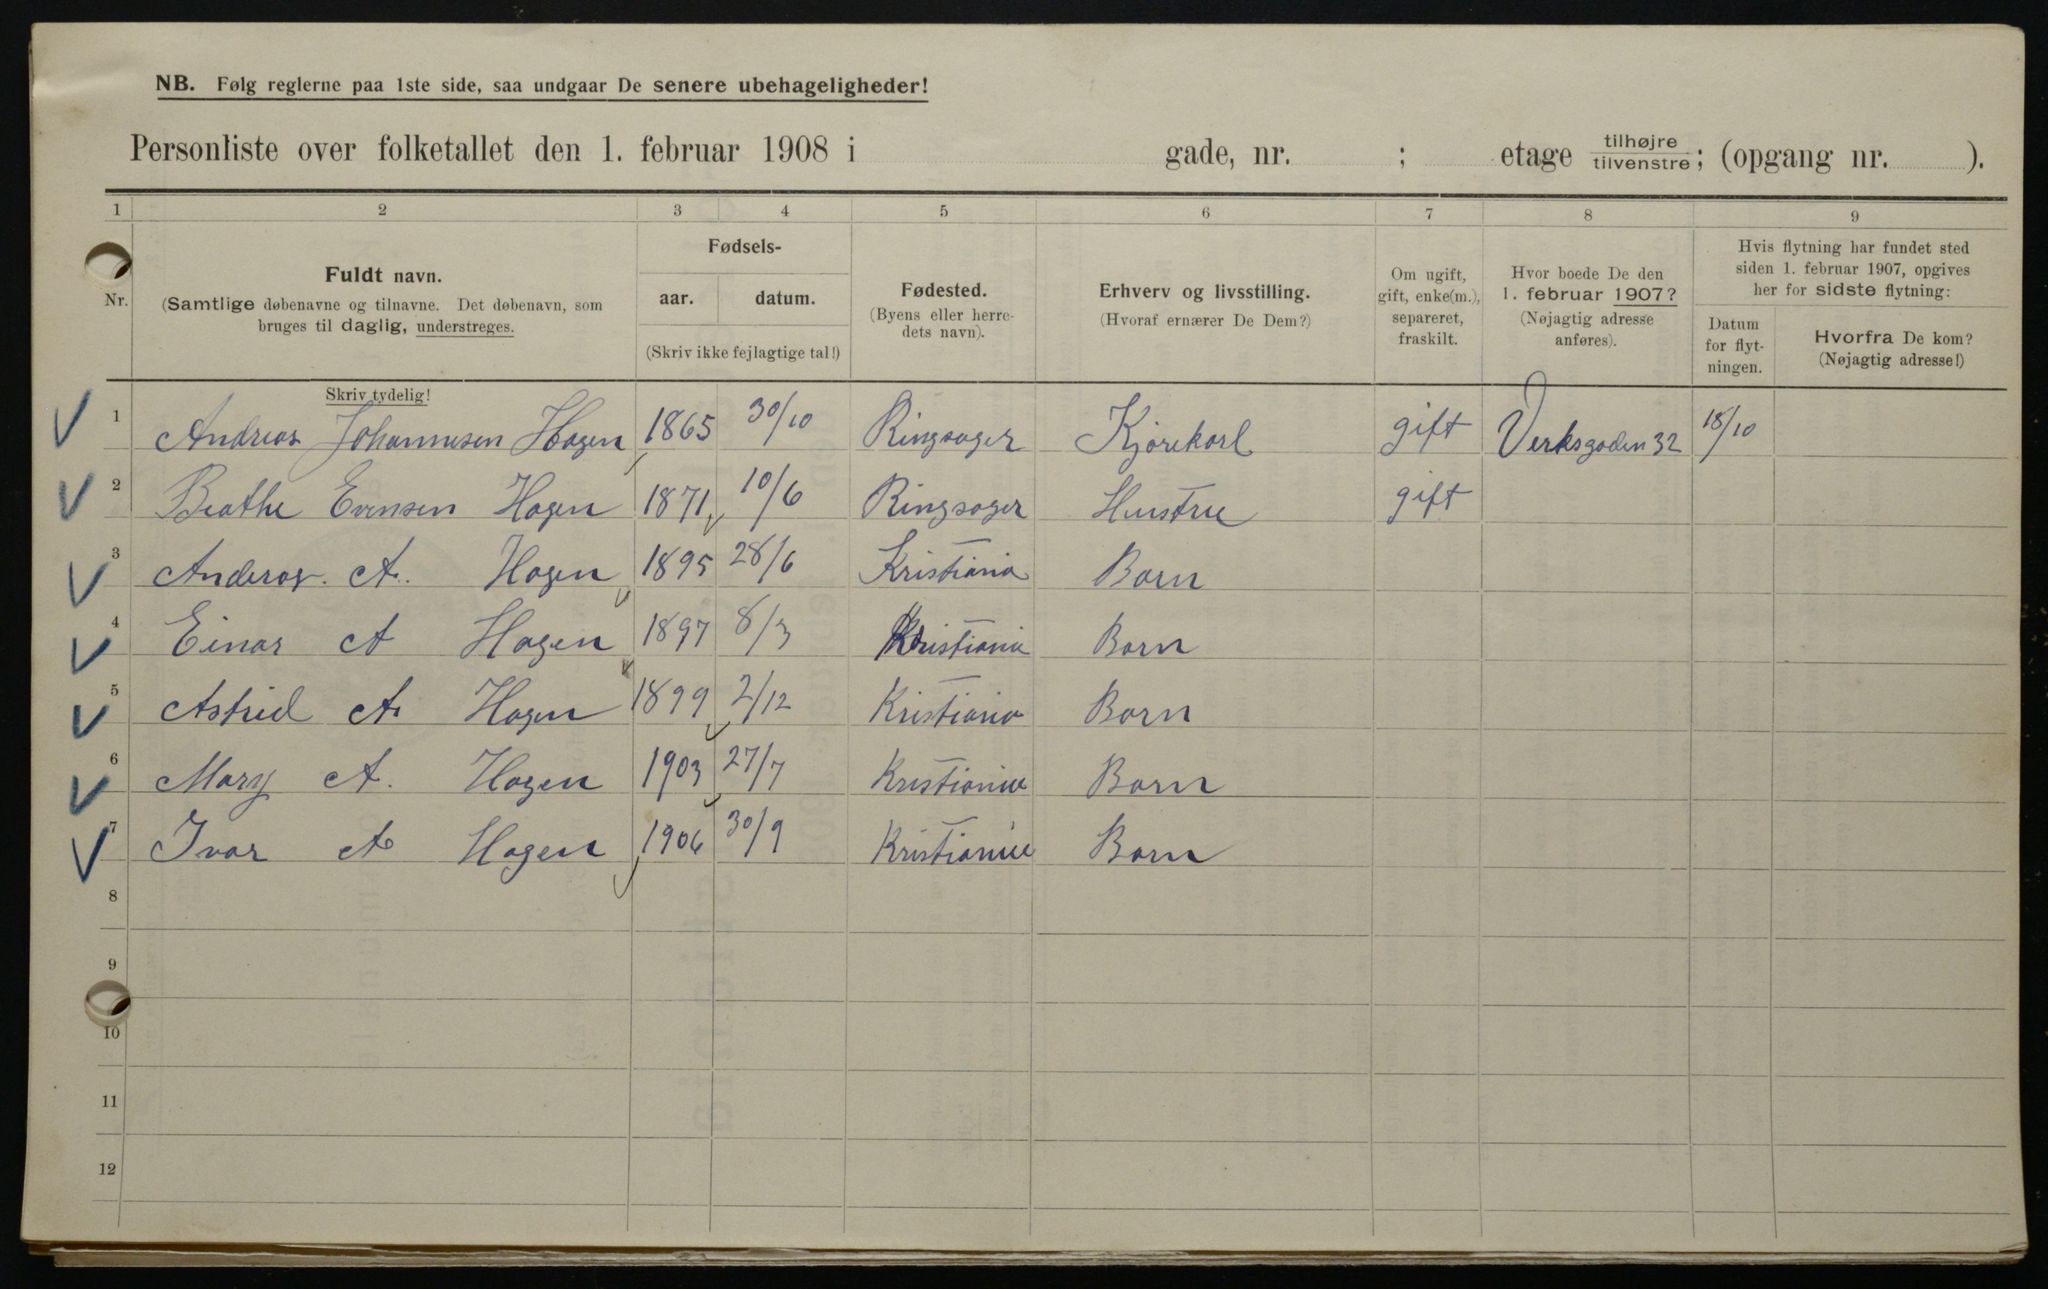 NB. Følg reglerne paa 1ste side, saa undgaar De senere ubehageligheder!
Personliste over folketallet den 1. februar 1908 i gade, nr. ; etage tilhøjre/tilvenstre; (opgang nr. ).
1 2 3 4 5 6 7 8 9
Nr.
Fuldt navn.
(Samtlige døbenavne og tilnavne. Det døbenavn, som
bruges til daglig, understreges.
Skriv tydelig!
Fødsels-
aar. datum.
(Skriv ikke fejlagtige tal!)
Fødested.
(Byens eller herre-
dets navn).
Erhverv og livsstilling.
(Hvoraf ernærer De Dem?)
Om ugift,
gift, enke(m.),
separeret,
fraskilt.
Hvor boede De den
1. februar 1907?
(Nøjagtig adresse
anføres).
Hvis flytning har fundet sted
siden 1. februar 1907, opgives
her for sidste flytning:
Datum
for flyt-
ningen.
Hvorfra De kom?
(Nøjagtig adresse!)
1 Andreas Johannesen Hagen 1865 30/10 Ringsager Kjørekarl gift Verksgaden 32 18/10
2 Beathe Evensen Hagen 1871 10/6 Ringsager Hustrue gift
3 Anderas. A. Hagen 1895 28/6 Kristiania Barn
4 Einar A Hagen 1897 8/3 Kristiania Barn
5 Astrid A Hagen 1899 2/12 Kristiania Barn
6 Mary A. Hagen 1903 27/7 Kristiania Barn
7 Ivar A Hagen 1906 30/9 Kristiania Barn
8
9
10
11
12